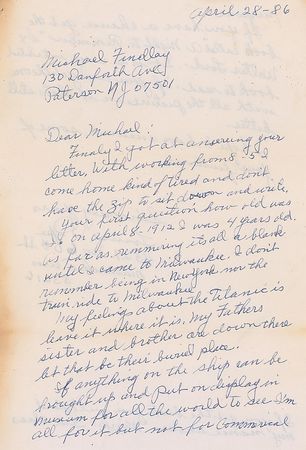 April 28-86
Michael Findlay
130 Danforth Ave
Paterson NJ 07501
Dear Michael:
Finaly I got at answering your
letter. With working from 8 5 I
come home kind of tired and don't
have the zip to sit down and write.
Your first question how old was
I on april 8-1912 I was 4 years old.
as far as it all a blank
until I came to Milwaukee. I don't
remember being in New York nor the
train ride to Milwaukee
My feelings about the Titanic is
leave it where it is. My Fathers
sister and brother are down there
let that be their burial place.
If anything on the ship can be
brought up and put on display in
Museum for all the world to see I'm
all for it but not for Commercial